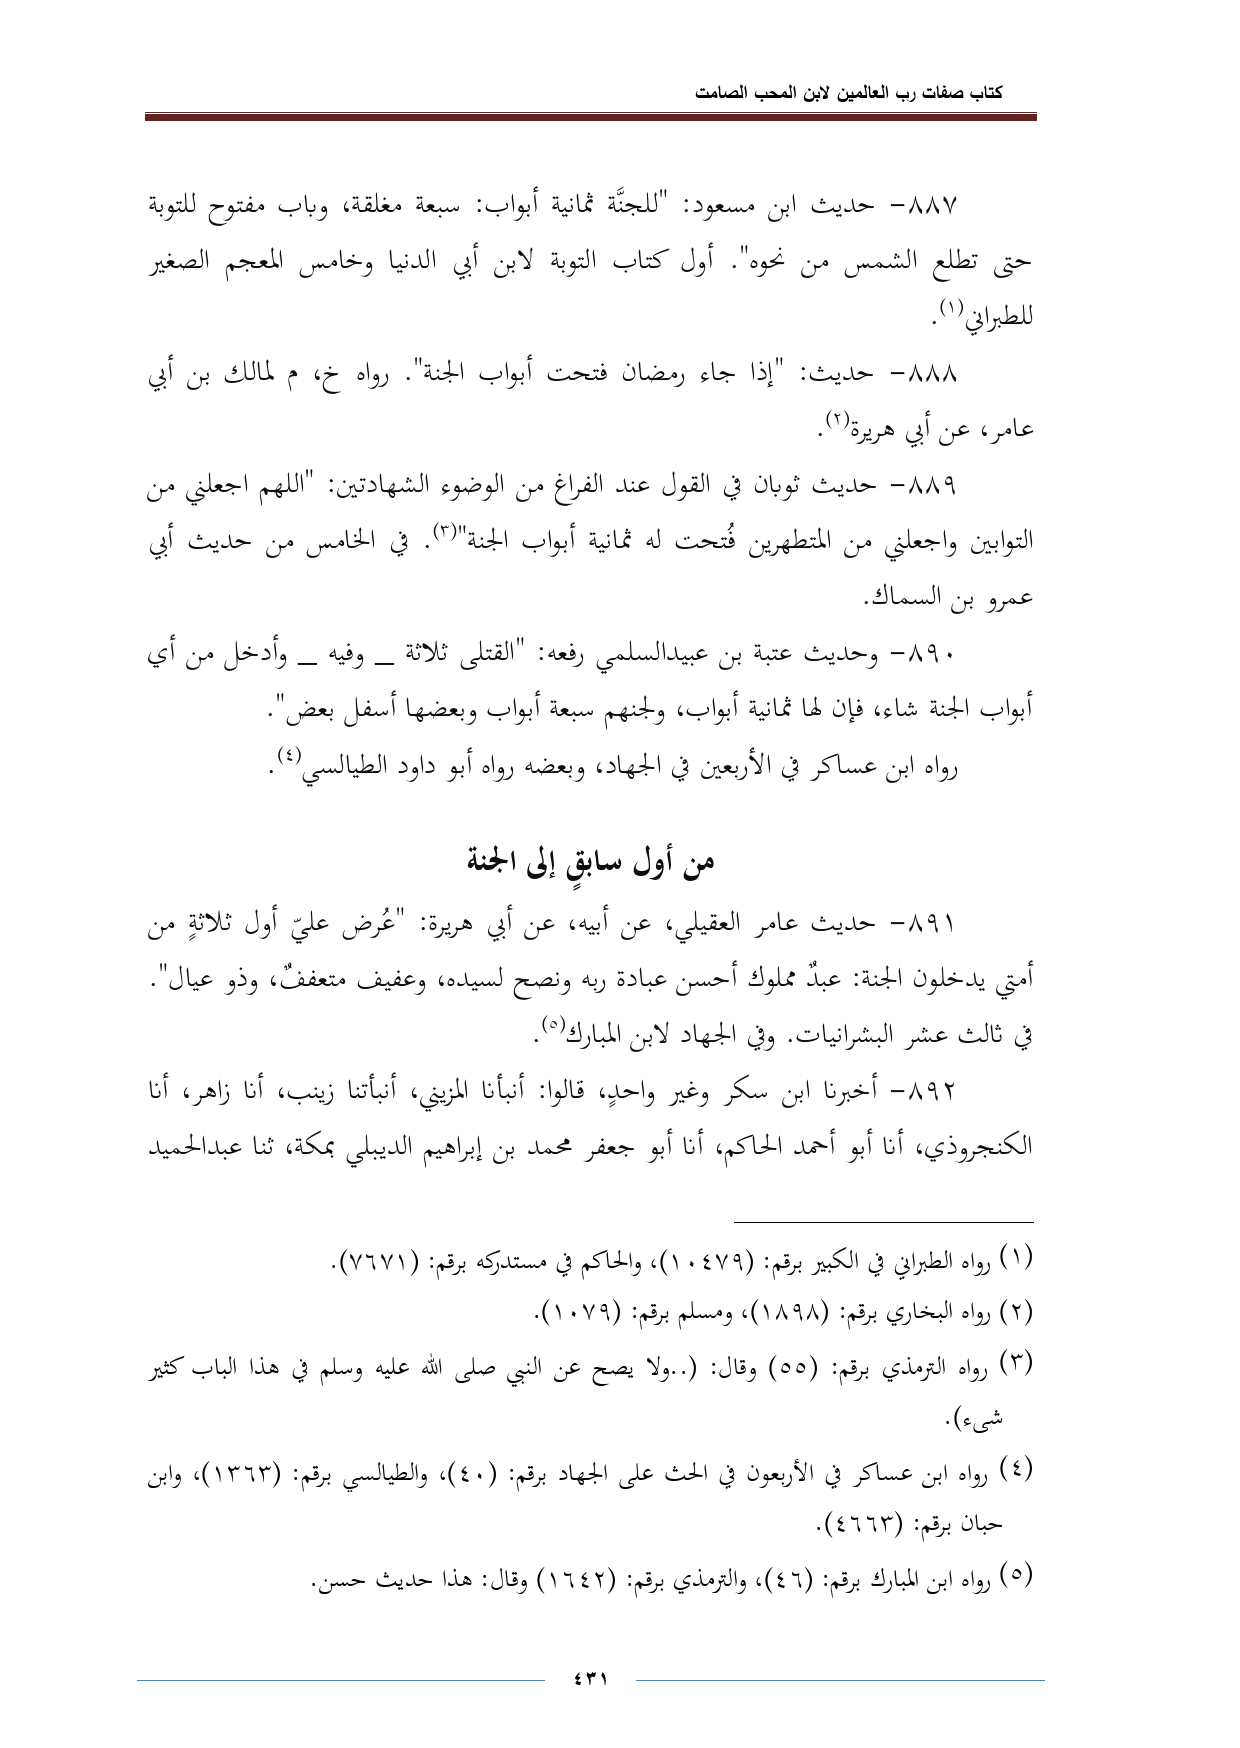 كتاب صفات رب العالمين لابن المحب الصامت
٨٨٧– حديث ابن مسعود: "للجنَّة ثمانية أبواب: سبعة مغلقة، وباب مفتوح للتوبة
حتى تطلع الشمس من نحوه". أول كتاب التوبة لابن أبي الدنيا وخامس المعجم الصغير
للطبراني(١).
٨٨٨– حديث: "إذا جاء رمضان فتحت أبواب الجنة". رواه خ، م لمالك بن أبي
عامر، عن أبي هريرة(٢).
٨٨٩– حديث ثوبان في القول عند الفراغ من الوضوء الشهادتين: "اللهم اجعلني من
التوابين واجعلني من المتطهرين فُتحت له ثمانية أبواب الجنة"(٣). في الخامس من حديث أبي
عمرو بن السماك.
٨٩٠– وحديث عتبة بن عبيدالسلمي رفعه: "القتلى ثلاثة _ وفيه _ وأدخل من أي
أبواب الجنة شاء، فإن لها ثمانية أبواب، ولجنهم سبعة أبواب وبعضها أسفل بعض".
رواه ابن عساكر في الأربعين في الجهاد، وبعضه رواه أبو داود الطيالسي(٤).
من أول سابقٍ إلى الجنة
٨٩١– حديث عامر العقيلي، عن أبيه، عن أبي هريرة: "عُرض عليّ أول ثلاثةٍ من
أمتي يدخلون الجنة: عبدٌ مملوك أحسن عبادة ربه ونصح لسيده، وعفيف متعففٌ، وذو عيال".
في ثالث عشر البشرانيات. وفي الجهاد لابن المبارك(٥).
٨٩٢– أخبرنا ابن سكر وغير واحدٍ، قالوا: أنبأنا المزيني، أنبأتنا زينب، أنا زاهر، أنا
الكنجروذي، أنا أبو أحمد الحاكم، أنا أبو جعفر محمد بن إبراهيم الديبلي بمكة، ثنا عبدالحميد
(١) رواه الطبراني في الكبير برقم: (١٠٤٧٩)، والحاكم في مستدركه برقم: (٧٦٧١).
(٢) رواه البخاري برقم: (١٨٩٨)، ومسلم برقم: (١٠٧٩).
(٣) رواه الترمذي برقم: (٥٥) وقال: (..ولا يصح عن النبي صلى الله عليه وسلم في هذا الباب كثير
شىء).
(٤) رواه ابن عساكر في الأربعون في الحث على الجهاد برقم: (٤٠)، والطيالسي برقم: (١٣٦٣)، وابن
حبان برقم: (٤٦٦٣).
(٥) رواه ابن المبارك برقم: (٤٦)، والترمذي برقم: (١٦٤٢) وقال: هذا حديث حسن.
٤٣١